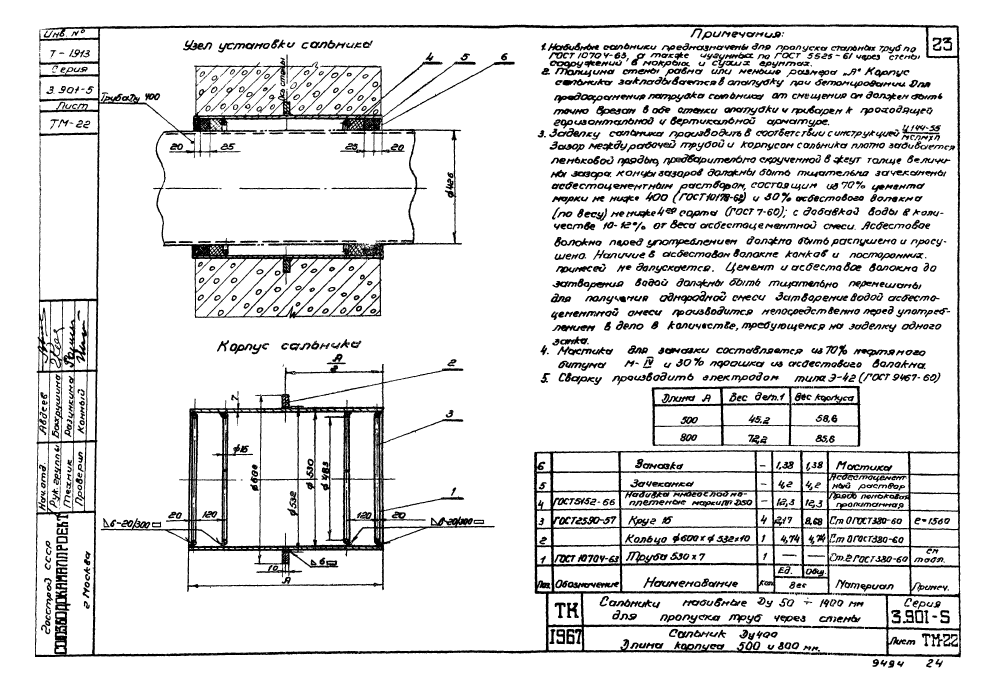 Инв. №
Т-1913
Серия
3.901-5
Лист
ТМ-22
Узел установки сальника
Труба Ду 400
Ось стены
4
5
6
20
25
25
20
ф426
Корпус сальника
A
2
3
1
7
ф16
ф600
ф532
ф530
ф483
20
120
120
20
6-20/300
6-20/300
10
6
A
Примечания:
23
1. Набивные сальники предназначены для пропуска стальных труб по
ГОСТ 10704-63, а также чугунных по ГОСТ 5525-61 через стены
сооружений в мокрых и сухих грунтах.
2. Толщина стены равна или меньше размера „А" Корпус
сальника закладывается в опалубку при бетонировании. Для
предохранения патрубка сальника от смещения он должен быть
точно врезан в обе стенки опалубки и приварен к проходящей
горизонтальной и вертикальной арматуре.
3. Заделку сальника производить в соответствии с инструкцией
Зазор между рабочей трубой и корпусом сальника плотно забивается
пеньковой прядью, предварительно скрученной в жгут толще величи-
ны зазора. концы зазоров должны быть тщательно зачеканены
асбестоцементным раствором, состоящим из 70% цемента
марки не ниже 400 (ГОСТ 10178-62) и 30% асбестового волокна
(по весу) не ниже 4го сорта (ГОСТ 7-60); с добавкой воды в коли-
честве 10-12% от веса асбестоцементной смеси. Асбестовое
волокно перед употреблением должно быть распушено и просу-
шено. Наличие в асбестовом волокне комков и посторонних
примесей не допускается. Цемент и асбестовое волокно до
затворения водой должны быть тщательно перемешаны
для получения однородной смеси. Затворение водой асбесто-
цементной смеси производится непосредственно перед употреб-
лением в дело в количестве, требующемся на заделку одного
замка.
4. Мастика для замазки составляется из 70% нефтяного
битума М-IV и 30% порошка из асбестового волокна.
5. Сварку производить электродом типа Э-42 (ГОСТ 9467-60)
Длина А Вес дет.1 Вес корпуса
500 45,2 58,6
800 72,2 85,6
6 Замазка - 1,38 1,38 Мастика
5 Зачеканка - 4,2 4,2 Асбестоцемент-ный раствор
4 ГОСТ 5152-66 Набивка многослойно-плетеные марки ПП Д50 - 12,3 12,3 Прядь пеньковая пропитанная
3 ГОСТ 2590-57 Круг 16 4 2,17 8,68 Ст.0 ГОСТ 380-60 e=1560
2 Кольцо ф600 х ф532х10 1 4,74 4,74 Ст.0 ГОСТ 380-60
1 ГОСТ 10704-63 Труба 530 х 7 1 — — Ст.2 ГОСТ 380-60 см табл.
Поз. Обозначение Наименование Кол Ед. Общ. Вес Материал Примеч.
ТК
1967
Сальники набивные Ду 50 ÷ 1400 мм
для пропуска труб через стены
Серия
3.901-5
Сальник Ду 400
Длина корпуса 500 и 800 мм.
Лист ТМ-22
9494 24
Госстрой СССР
СОЮЗВОДОКАНАЛПРОЕКТ
г. Москва
Нач. отд. Авдеев
Рук. группы Бахрушина
Техник Разункина
Проверил Конный